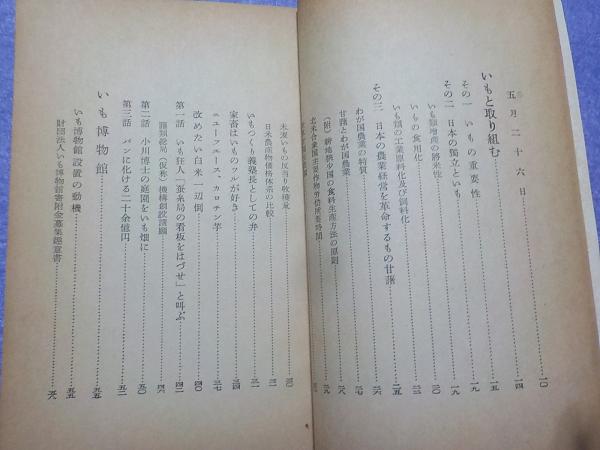 五月二十六日……一〇
いもと取り組む……一四
その一 いもの重要性……一五
その二 日本の独立といも……一九
いも類増産の將来性……一九
いもの食料化……二〇
いも類の工業原料化及び飼料化……二五
その三 日本の農業経営を革命するもの甘藷……二六
わが国農業の特質……二七
甘藷とわが国農業……二八
(附) 耕地狹少国の食料生産方法の原則……二九
北米合衆国主要作物労働所要時間
米麦いもの反当り收穫量……三〇
日米農産物価格体系の比較……三一
いもつくり義塾長としての弁……三二
家畜はいものツルが好き……三四
ニューフェース、カロチン芋……三七
改めたい白米一辺倒……四〇
第一話 いも狂人「蚕糸局の看板をはづせ」と叫ぶ……四二
藷類総局(仮称)機構創設請願……四六
第二話 小川博士の庭園をいも畑に……五〇
第三話 パンに化ける二十余億円……五二
いも博物館……五五
いも博物館設置の動機……五五
財団法人いも博物館寄附金募集趣意書……五八